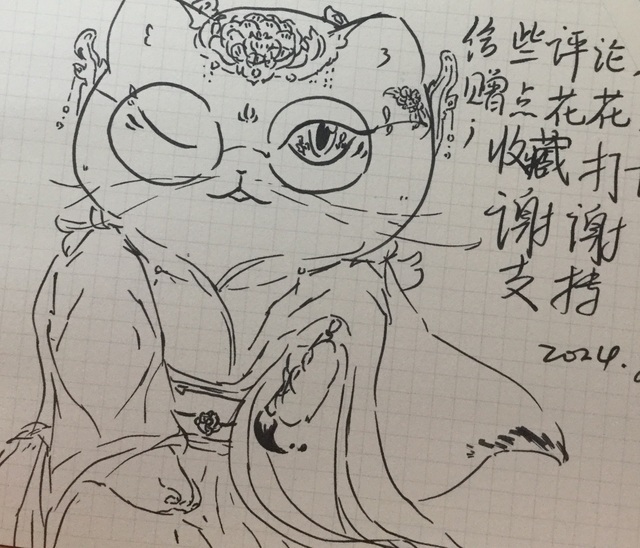 给些评论、
赠点花花
，收藏打
谢谢
支持
2024.